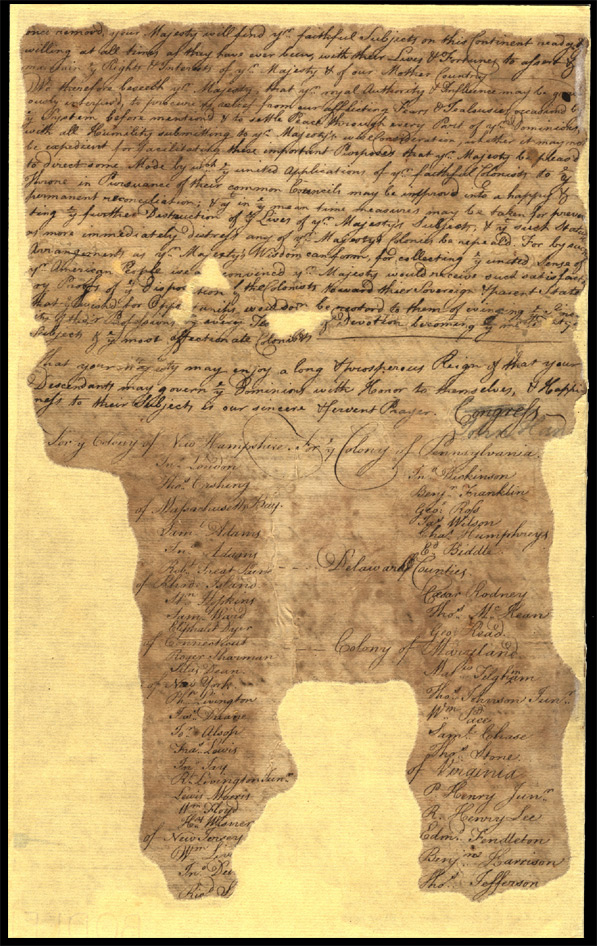 once removed, your Majesty will find yr. faithful Subjects on this Continent ready &
willing at all times as they have ever been, with their Lives & Fortunes to assert &
maintain ye Rights & Interests of yr. Majesty & of our Mother Country
We therefore beseech yr. Majesty that yr. royal Authority & Influence may be
ously extended, to procure us relief from our afflicting Fears & Jealousies occasioned by
ye System before mentioned, & to settle Peace through every Part of yr. Dominions,
with all Humility submitting to yr. Majesty's wise Consideration, whether it may not
be expedient for facilitating these important Purposes that yr. Majesty be pleased
to direct some Mode by wch. ye united Applications of yr. faithful Colonists to ye
Throne in Pursuance of their common Councils may be improved into a happy &
permanent reconciliation; & yt in ye mean time measures may be taken for preven
ting ye further Destruction of ye Lives of yr. Majesty's Subjects, & yt such Statutes
as more immediately distress any of yr. Majesty's Colonies be repeald. For by such
Arrangements as yr. Majesty's Wisdom can form, for collecting ye united Sense of
yr. American People we are convinced yr. Majesty would receive such satisfacto
ry Proofs of ye Disposition of the Colonists toward their Sovereign & parent State
that ye would be restord to them of evincing ye
of their Professions by every & Devotion becoming ye most
Subjects & ye most affectionate Colonists
That your Majesty may enjoy a long & prosperous Reign & that your
Descendants may govern ye Dominions with Honor to themselves, & Happi
ness to their Subjects is our sincere & fervent Prayer.
Congress
John Han
For ye Colony of New Hampshire
Jno. Langdon
Thos.
of Massachusetts Bay.
Saml. Adams
Jno. Adams
Robt. Treat
of Rhode Island.
Stn. Hopkins
Saml. Ward
Eliphalet Dyer
of Connecticut
Roger Sherman
Silas Dean
of New York
Phl. Livington
Jas. Duane
Jo. Alsop
Fras. Lewis
Jn. Jay
Rt. Livington Junr.
Lewis Morris
Wm. Floyd
Hy. Wisner
of New Jersey
Wm. Liv
Jno. De
Richd. S
For ye Colony of Pennsylvania.
Jno. Dickinson
Benjn. Franklin
Geo. Ross
Jas. Wilson
Chas. Humphreys
Ed. Biddle
Delaware Counties.
Cæsar Rodney
Thos. Mc Kean
Geo. Read
Colony of Maryland
Matw. Tilghman
Thos. Johnson Junr.
Wm. Pace
Saml. Chase
Thos. Stone
of Virginia
P. Henry Junr.
R. Henry Lee
Edmd. Pendleton
Benjn. Harrison
Thos. Jefferson